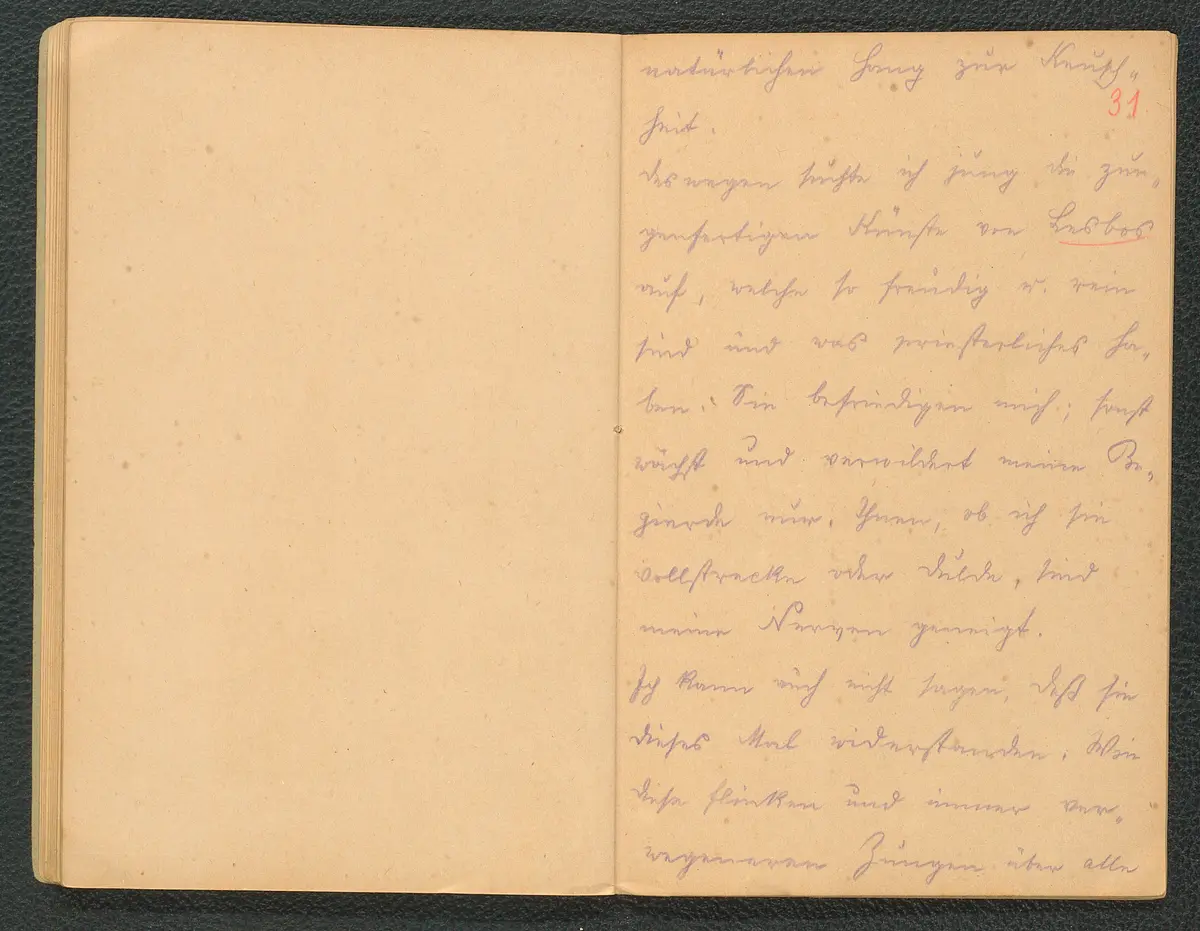 natürlichen Hang zur Keusch-
31
heit.
Deswegen suchte ich jung die zun-
genfertigen Künste von Lesbos
auf, welche so freudig u. rein
sind und was priesterliches ha-
ben. Sie befriedigen mich; sonst
wächst und verwildert meine Be-
gierde nur. Ihnen, ob ich sie
vollstrecke oder dulde, sind
meine Nerven geneigt.
Ich kann auch nicht sagen, daß sie
dieses Mal widerstanden. Wie
diese flinken und immer ver-
wegeneren Zungen über alle